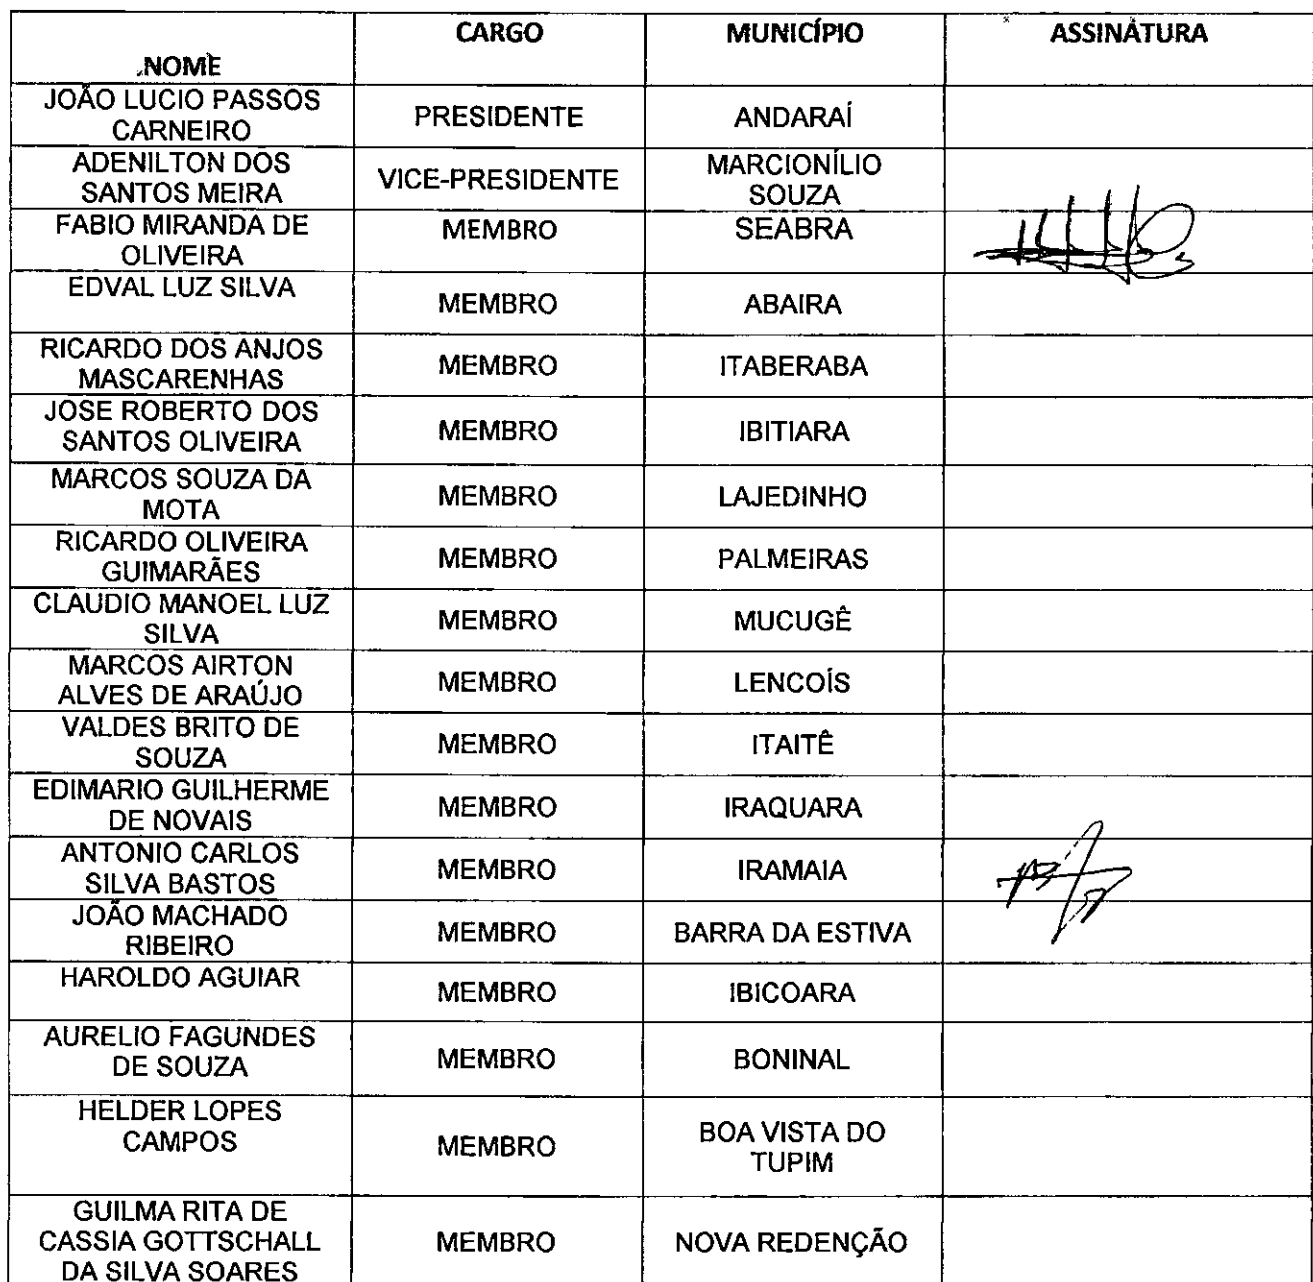 NOME CARGO MUNICÍPIO ASSINATURA
JOÃO LUCIO PASSOS
CARNEIRO PRESIDENTE ANDARAÍ
ADENILTON DOS
SANTOS MEIRA VICE-PRESIDENTE MARCIONÍLIO
SOUZA
FABIO MIRANDA DE
OLIVEIRA MEMBRO SEABRA
EDVAL LUZ SILVA MEMBRO ABAIRA
RICARDO DOS ANJOS
MASCARENHAS MEMBRO ITABERABA
JOSE ROBERTO DOS
SANTOS OLIVEIRA MEMBRO IBITIARA
MARCOS SOUZA DA
MOTA MEMBRO LAJEDINHO
RICARDO OLIVEIRA
GUIMARÃES MEMBRO PALMEIRAS
CLAUDIO MANOEL LUZ
SILVA MEMBRO MUCUGÊ
MARCOS AIRTON
ALVES DE ARAÚJO MEMBRO LENCOÍS
VALDES BRITO DE
SOUZA MEMBRO ITAITÊ
EDIMARIO GUILHERME
DE NOVAIS MEMBRO IRAQUARA
ANTONIO CARLOS
SILVA BASTOS MEMBRO IRAMAIA
JOÃO MACHADO
RIBEIRO MEMBRO BARRA DA ESTIVA
HAROLDO AGUIAR MEMBRO IBICOARA
AURELIO FAGUNDES
DE SOUZA MEMBRO BONINAL
HELDER LOPES
CAMPOS MEMBRO BOA VISTA DO
TUPIM
GUILMA RITA DE
CASSIA GOTTSCHALL
DA SILVA SOARES MEMBRO NOVA REDENÇÃO